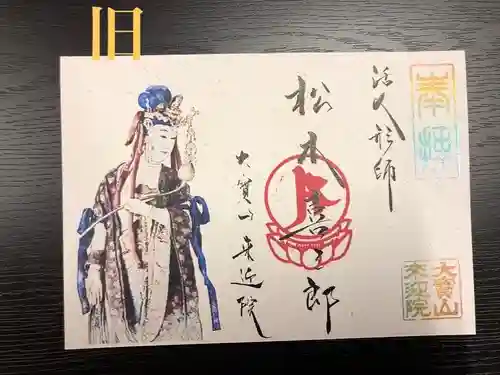 旧
奉拝
活人形師
松本喜三郎
大寶山 来迎院
大寶山
来迎院